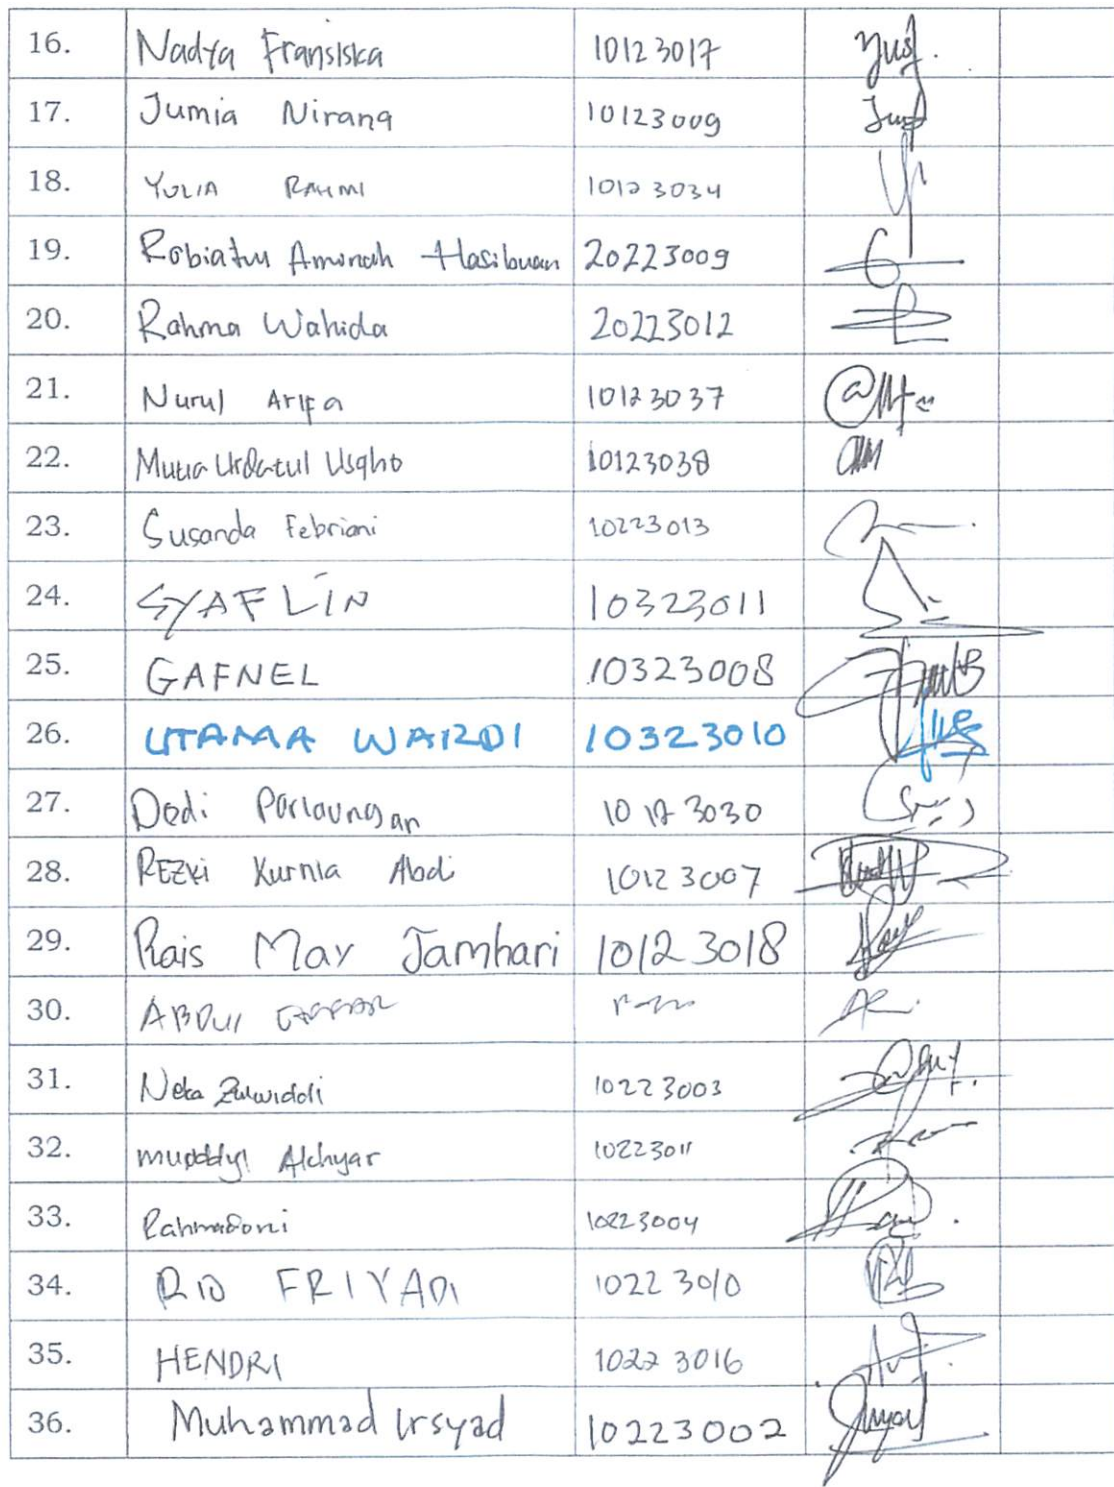 16. Nadya Fransiska 10123017
17. Jumia Nirana 10123009
18. YULIA RAHMI 10123034
19. Robiatul Aminah Hasibuan 20223009
20. Rahma Wahida 20223012
21. Nurul Arifa 10123037
22. Mutia Urdatul Usqho 10123038
23. Susanda Febriani 10223013
24. SYAFLIN 10323011
25. GAFNEL 10323008
26. UTAMA WARDI 10323010
27. Dedi Parlaungan 10123030
28. REZKi Kurnia Abdi 10123007
29. Rais May Jamhari 10123018
30. ABDUl
31. Neka 10223003
32. Alchyar 10223011
33. Rahmadoni 10223004
34. RIO FRIYADI 10223010
35. HENDRI 10223016
36. Muhammad Irsyad 10223002